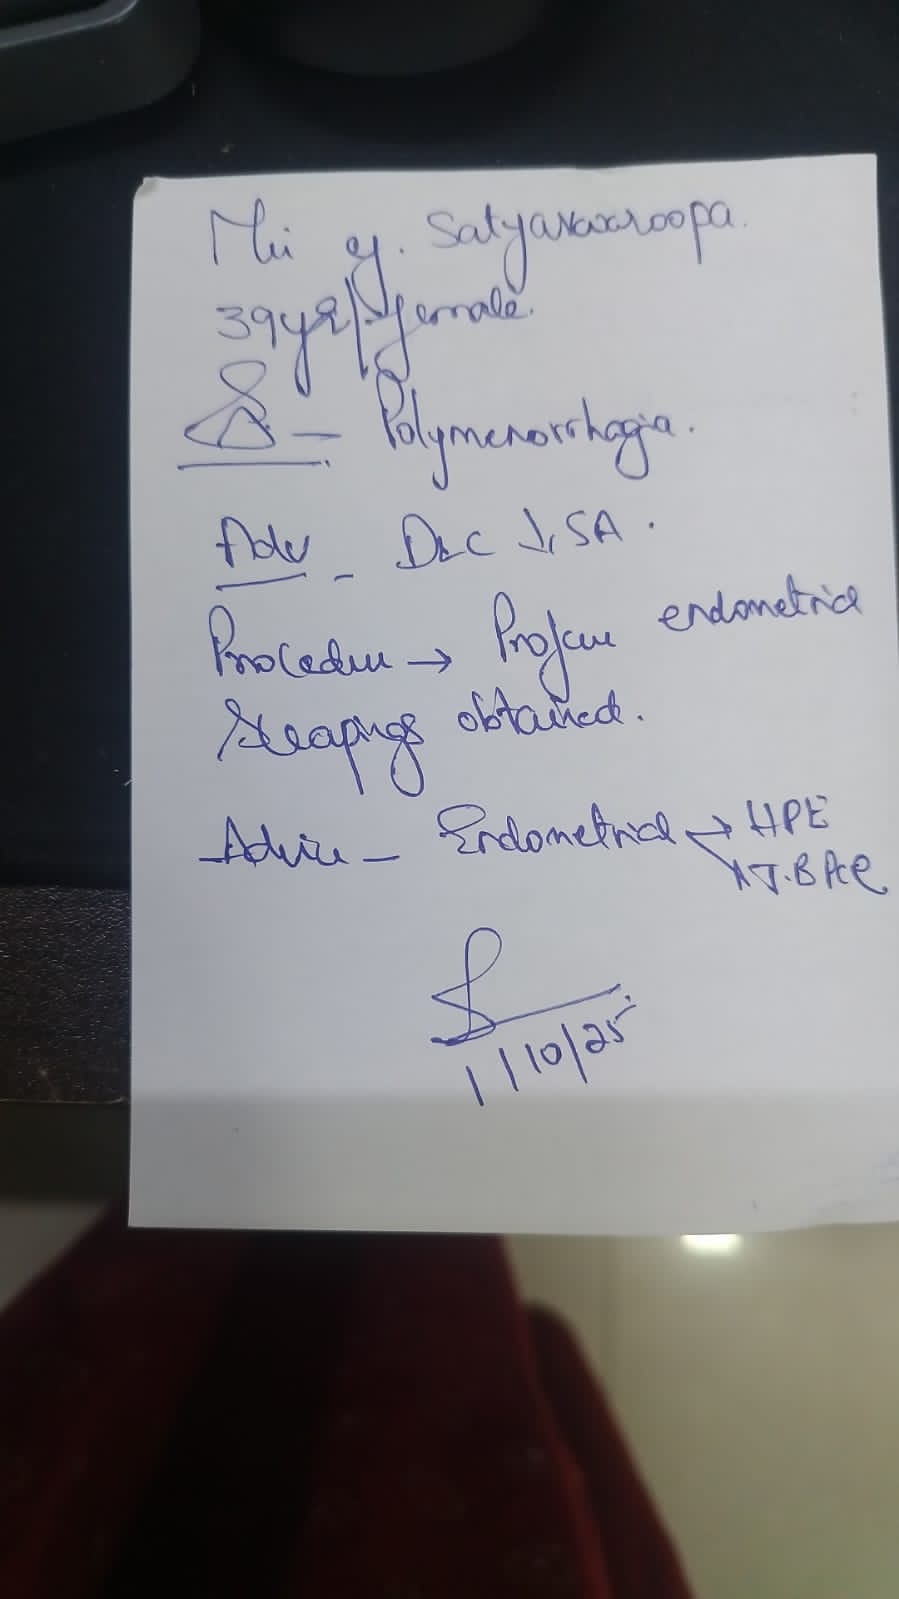 39yr/female.
Δ - Polymenorrhagia.
Adv - D&C ↓ SA.
Procedure → Profuse endometrial
Scrapings obtained.
Advice - Endometrial → HPE
T.B PCR
1/10/25